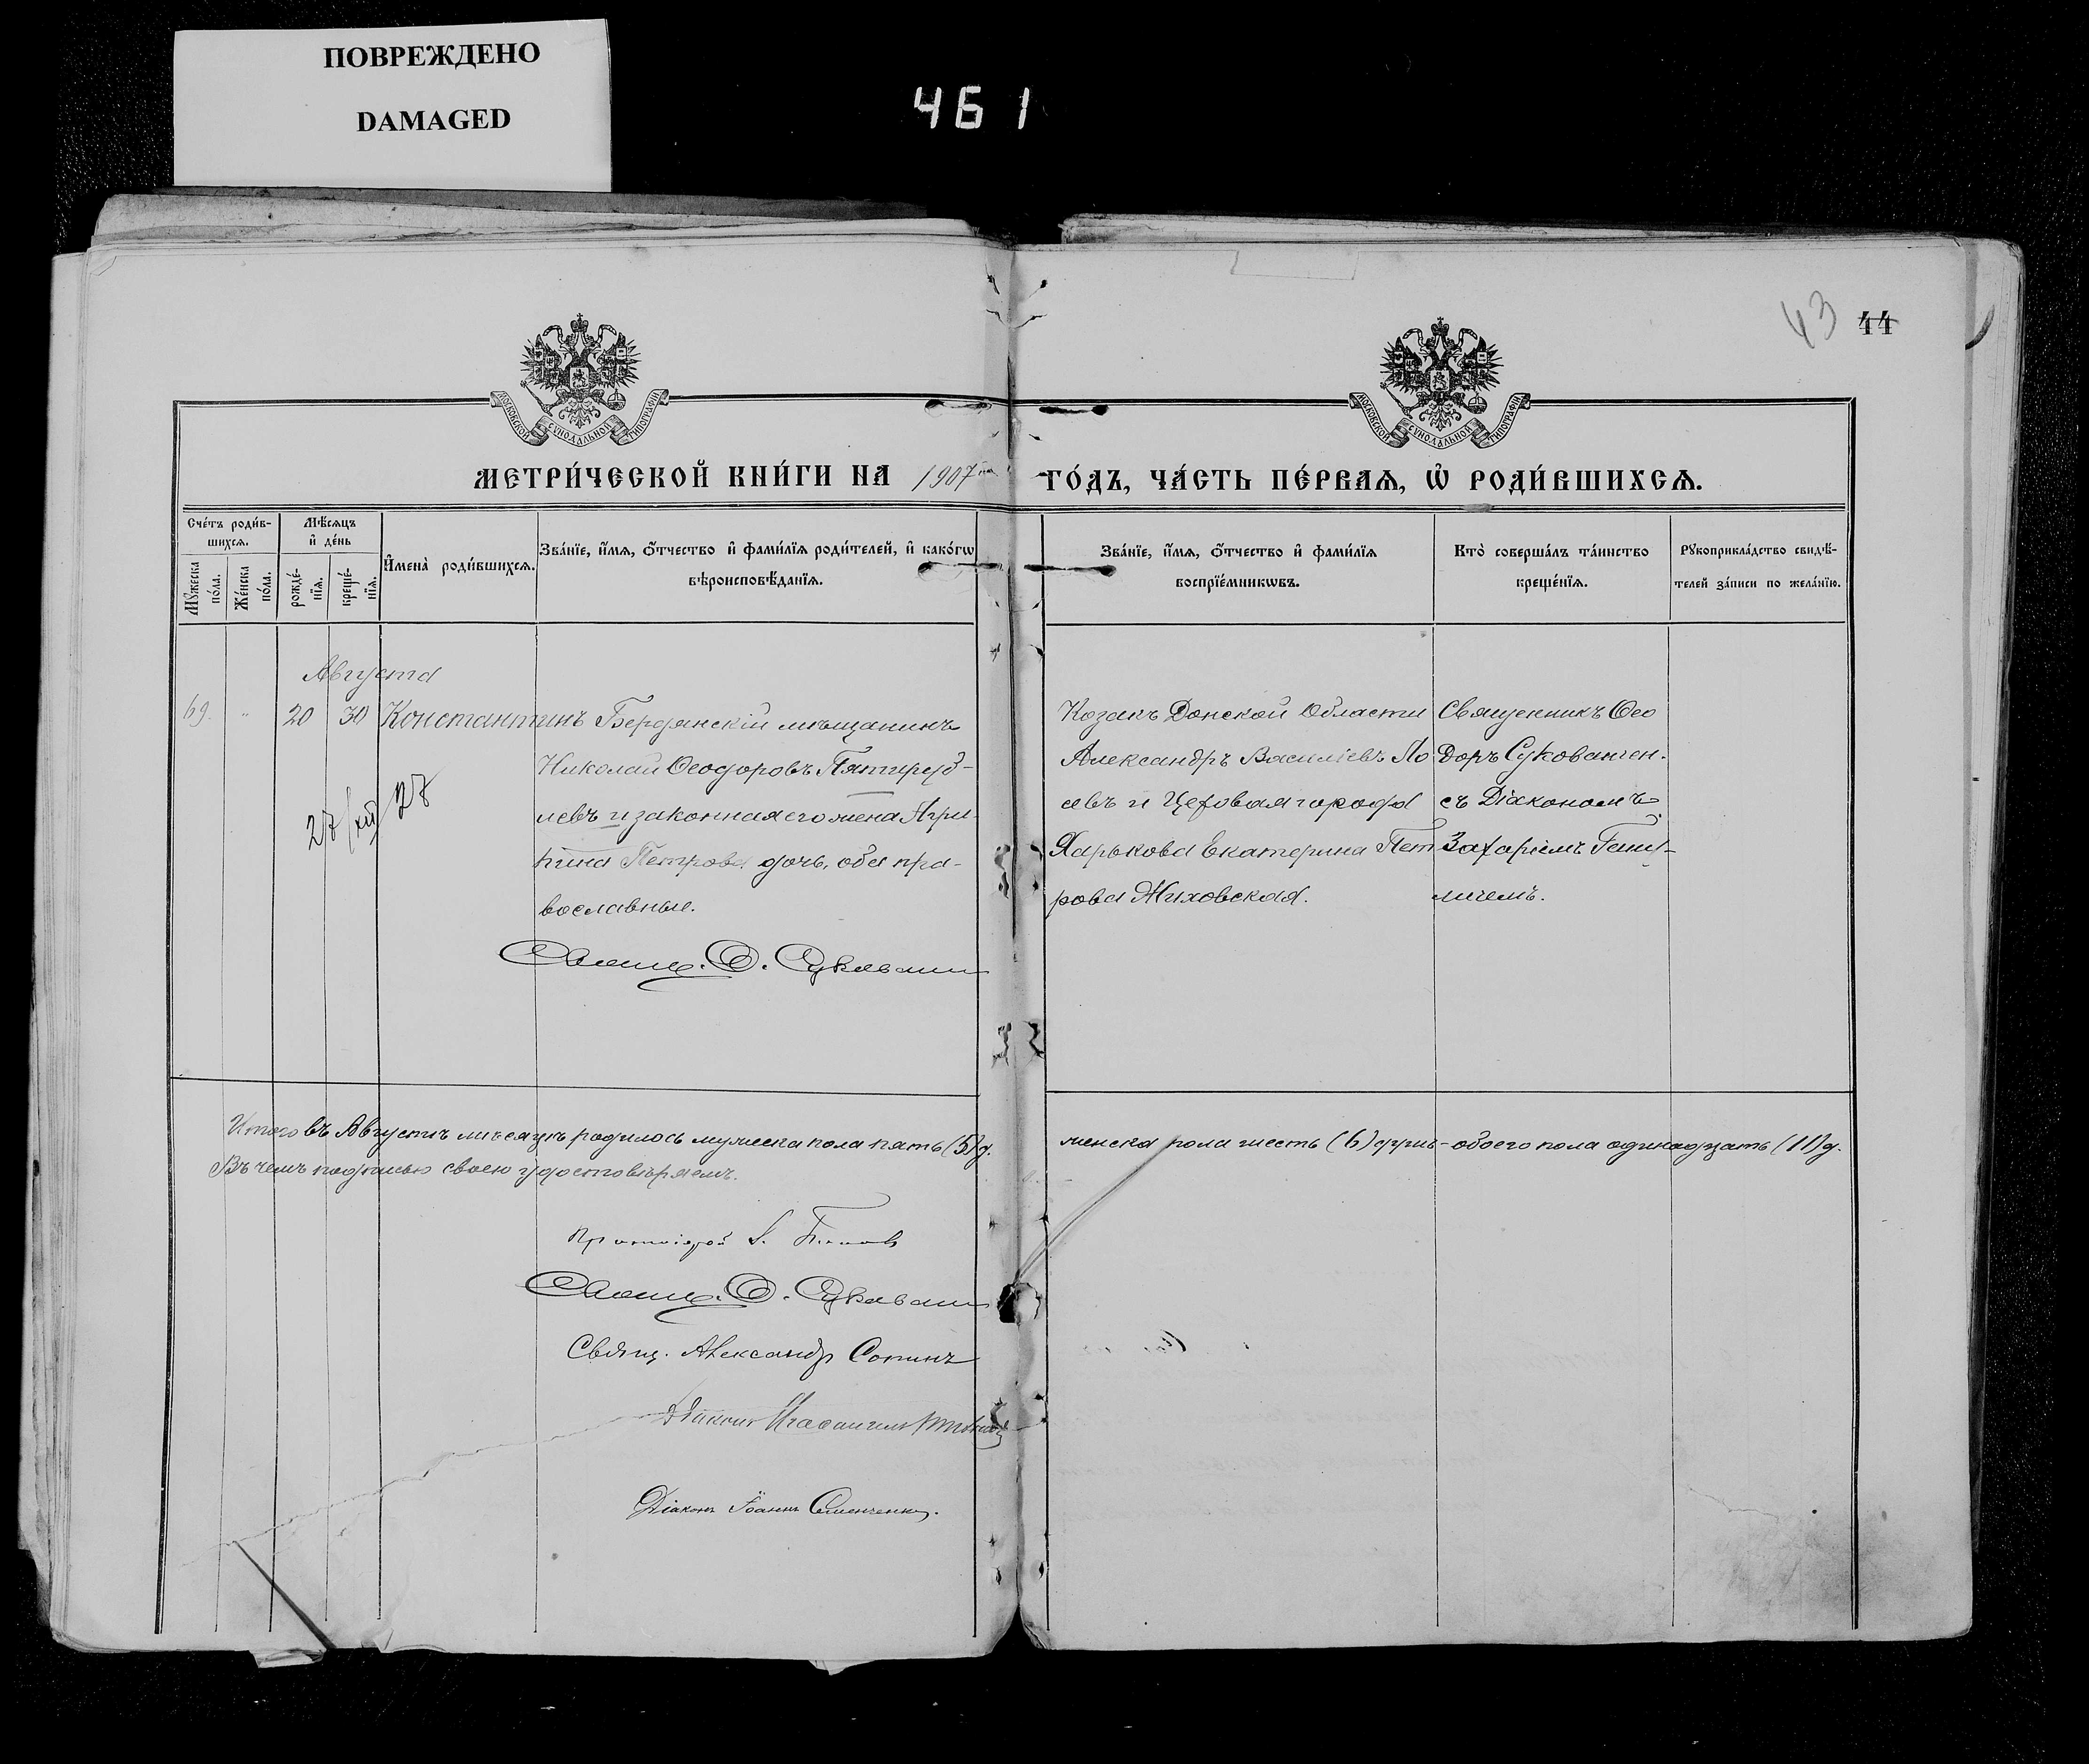 ПОВРЕЖДЕНО
DAMAGED
461
43 44
МОСКОВСКОЙ СѴНОДАЛЬНОЙ ТИПОГРАФІИ
МОСКОВСКОЙ СѴНОДАЛЬНОЙ ТИПОГРАФІИ
МЕТРИ́ЧЕСКОЙ КНИ́ГИ НА 1907
ГО́ДЪ, ЧА́СТЬ ПЕ́РВАЯ, Ѽ РОДИ́ВШИХСѦ.
Сче́тъ роди́в-
шихсѧ.
Мꙋ́жеска по́ла.
Же́нска по́ла.
Мѣ́сяцъ
и҆ де́нь
рожде́-
нїѧ.
креще́-
нїѧ.
И҆мена̀ роди́вшихсѧ.
Зва́нїе, и҆́мѧ, ѻ҆́тчество и҆ фами́лїѧ роди́телей, и҆ како́гѡ
вѣроисповѣ́данїѧ.
Зва́нїе, и҆́мѧ, ѻ҆́тчество и҆ фами́лїѧ
воспрїе́мникѡвъ.
Кто̀ соверша́лъ та́инство
креще́нїѧ.
Рꙋкоприкла́дство свидѣ́-
телей за́писи по жела́нїю.
Августа
69. " 20 30 Константинъ Бердянскій мѣщанинъ
Николай Ѳеодоровъ Пятируб-
левъ и законная его жена Агри-
пина Петрова дочь, оба пра-
вославные.
27/XII 27
Козакъ Донской Области
Александръ Василіевъ Ло
евъ и Цеховая города
Харькова Екатерина Пет
рова Жиховская.
Священникъ Ѳео
доръ Сукованчен.
съ Діакономъ
Захаріемъ Гениу-
личемъ.
Свящ. Ѳ. Сукован
Итого въ Августѣ мѣсяцѣ родилось мужеска пола пять (5) д.
женска пола шесть (6) душъ - обоего пола одинадцать (11) д.
Въ чемъ подписью своею удостовѣряемъ.
Протоіерей
Свящ. Ѳ. Сукован
Свящ. Александр Сопинъ
Діаконъ
Діаконъ Іоаннъ Семенченко.